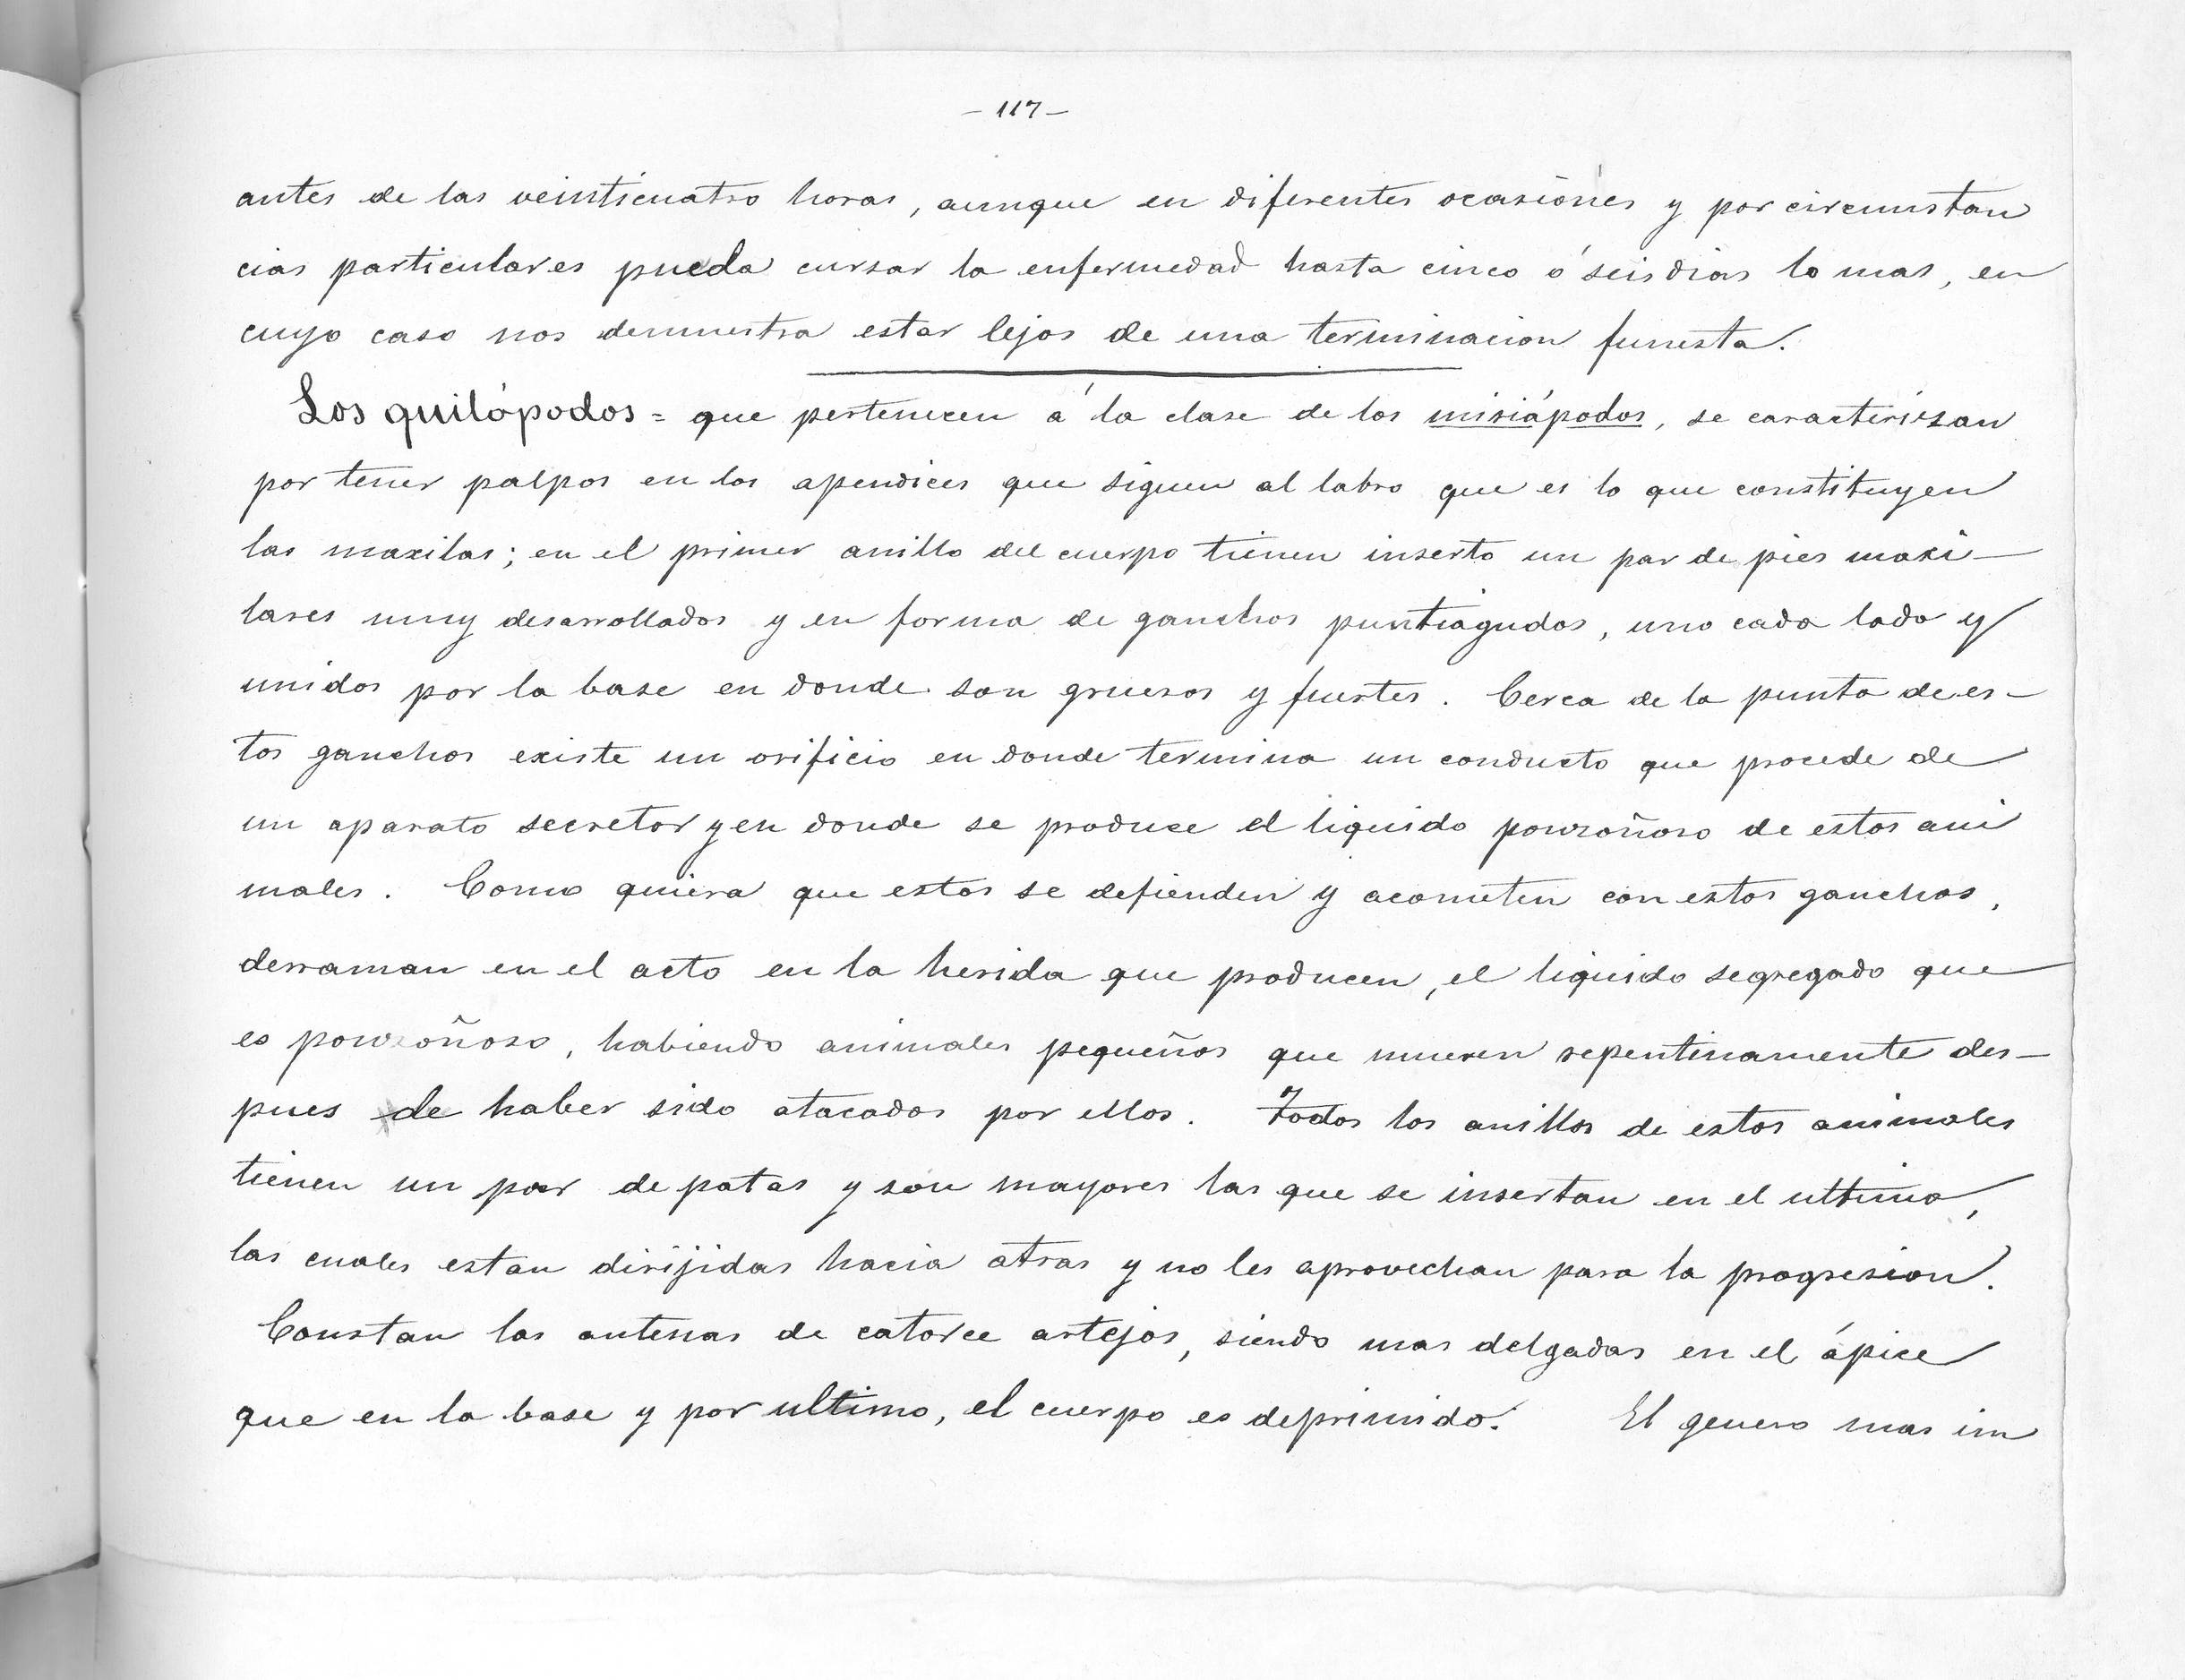 - 117 -
antes de las veinticuatro horas, aunque en diferentes ocasiónes y por circunstan
cias particulares pueda cursar la enfermedad hasta cinco ó seis dias lo mas, en
cuyo caso nos demuestra estar lejos de una terminacion funesta.
Los quilópodos = que pertenecen á la clase de los miriápodos, se caracterizan
por tener palpos en los apendices que siguen al labro que es lo que constituyen
las maxilas; en el primer anillo del cuerpo tienen inserto un par de pies maxi-
lares muy desarrollados y en forma de ganchos puntiagudos, uno cada lado y
unidos por la base en donde son gruesos y fuertes. Cerca de la punta de es-
tos ganchos existe un orificio en donde termina un conducto que procede de
un aparato secretor y en donde se produce el liquido ponzoñoso de estos ani
males. Como quiera que estos se defienden y acometen con estos ganchos,
derraman en el acto en la herida que producen, el liquido segregado que
es ponzoñoso, habiendo animales pequeños que mueren repentinamente des-
pues de haber sido atacados por ellos. Todos los anillos de estos animales
tienen un par de patas y son mayores las que se insertan en el ultimo,
las cuales estan dirijidas hacia atras y no les aprovechan para la progresion.
Constan las antenas de catorce artejos, siendo mas delgadas en el ápice
que en la base y por ultimo, el cuerpo es deprimido. El genero mas im